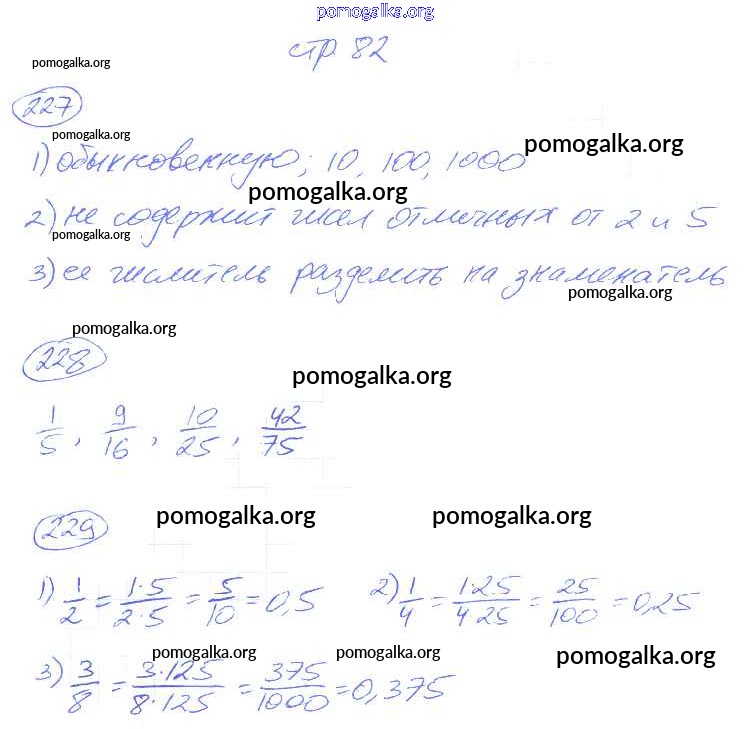 pomogalka.org
стр. 82
pomogalka.org
227
pomogalka.org
1) обыкновенную; 10, 100, 1000 pomogalka.org
pomogalka.org
2) не содержит чисел отличных от 2 и 5
pomogalka.org
3) ее числитель разделить на знаменатель
pomogalka.org
pomogalka.org
228
pomogalka.org
1/5, 9/16, 10/25, 42/75
pomogalka.org pomogalka.org
229
1) 1/2 = 1·5/2·5 = 5/10 = 0,5 2) 1/4 = 1·25/4·25 = 25/100 = 0,25
pomogalka.org pomogalka.org pomogalka.org
3) 3/8 = 3·125/8·125 = 375/1000 = 0,375